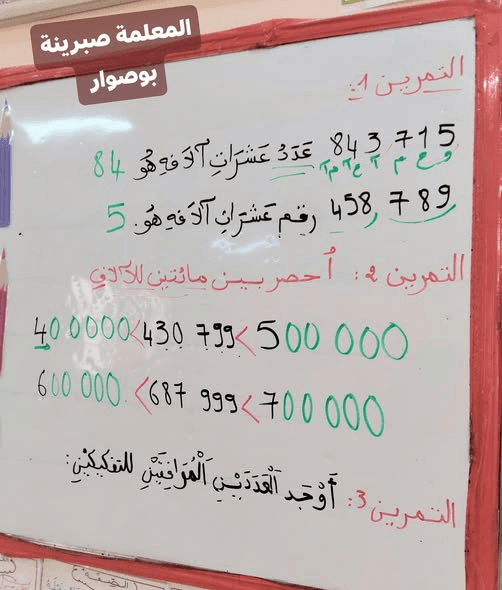 المعلمة صبرينة
بوصوار
التمرين 1:
843 715 عَدَدُ عَشَرَاتِ آلَافِهِ هُوَ 84
و ع م آ ع آ م آ
458 789 رقم عَشَرَاتِ آلَافِهِ هُوَ 5
التمرين 2: أُحصر بين مائتين للآلاف
400000 < 430 799 < 500 000
600 000 < 687 999 < 700 000
التمرين 3: أَوْجَد الْعَدَدَيْنِ الْمُرَافِقَيْنِ للتفكيكَيْنِ: